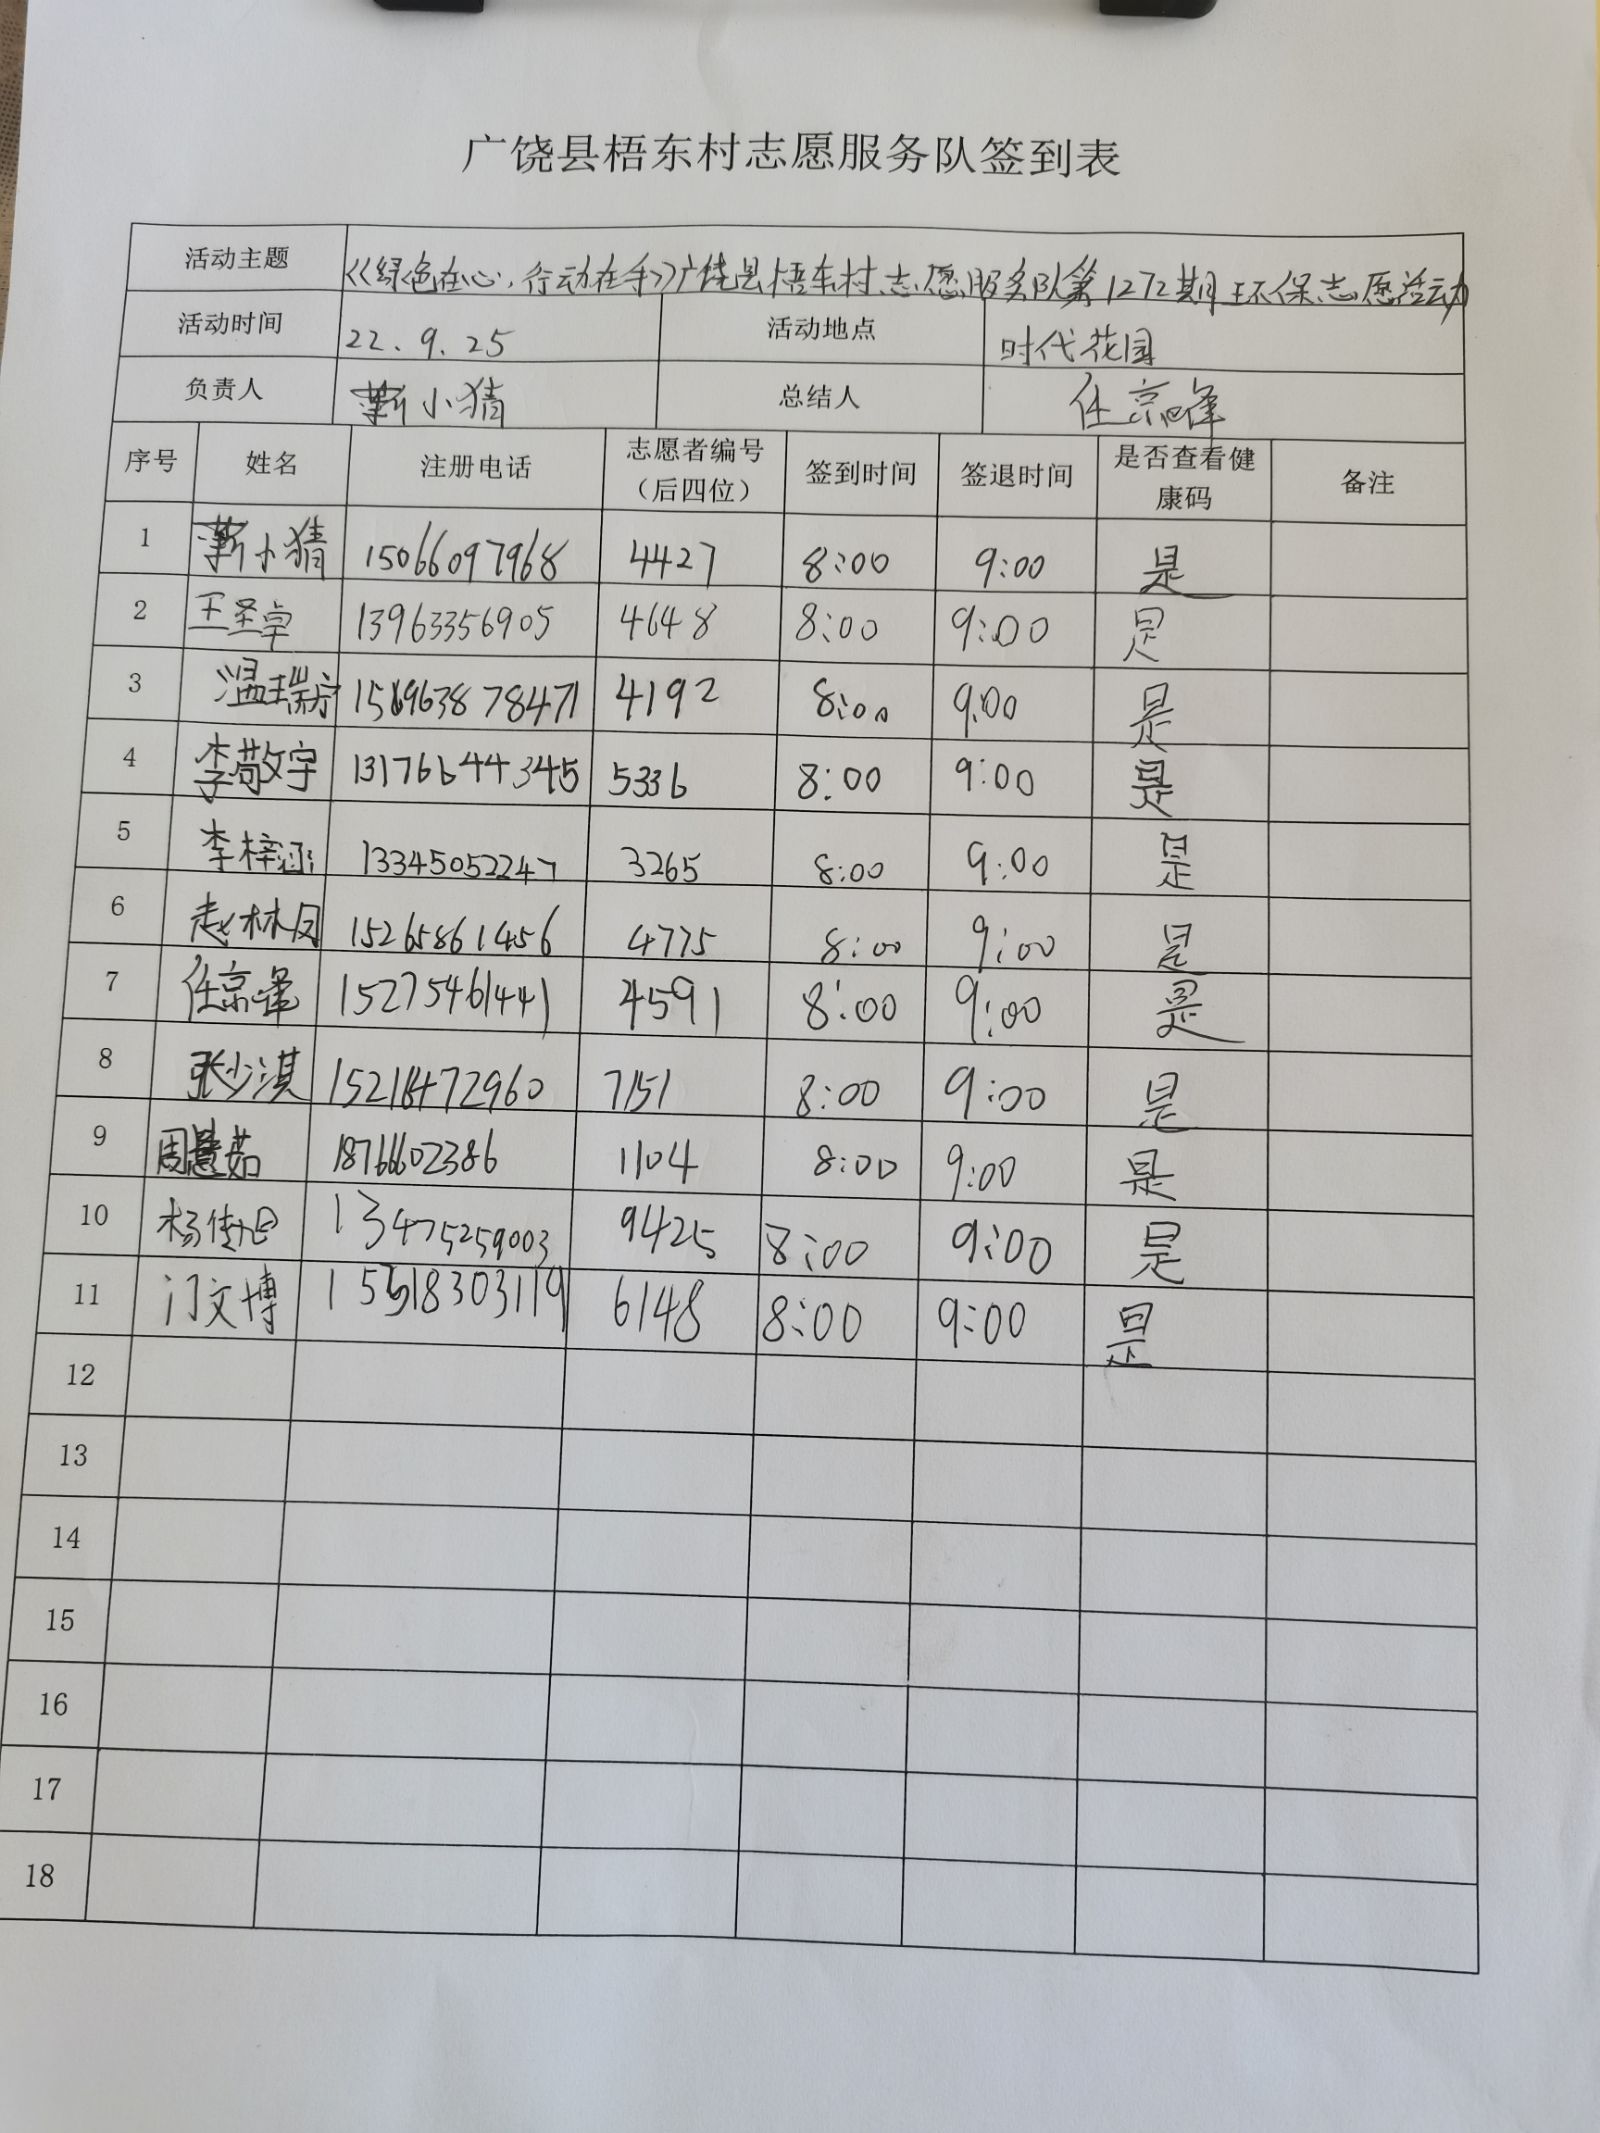 广饶县梧东村志愿服务队签到表
活动主题 《绿色在心，行动在手》广饶县梧东村志愿服务队第1272期环保志愿活动
活动时间 22.9.25 活动地点 时代花园
负责人 靳小猜 总结人 任京峰
序号 姓名 注册电话 志愿者编号（后四位） 签到时间 签退时间 是否查看健康码 备注
1 靳小猜 15066097968 4427 8:00 9:00 是
2 王圣卓 13963356905 4648 8:00 9:00 是
3 温瑞 4192 8:00 9:00 是
4 李敬宇 13176644345 5336 8:00 9:00 是
5 李梓涵 13345052247 3265 8:00 9:00 是
6 赵林凤 15265861456 4775 8:00 9:00 是
7 任京峰 15275461441 4591 8:00 9:00 是
8 张少淇 7151 8:00 9:00 是
9 周慧茹 18766602386 1104 8:00 9:00 是
10 杨 13475259003 9425 8:00 9:00 是
11 门文博 6148 8:00 9:00 是
12
13
14
15
16
17
18